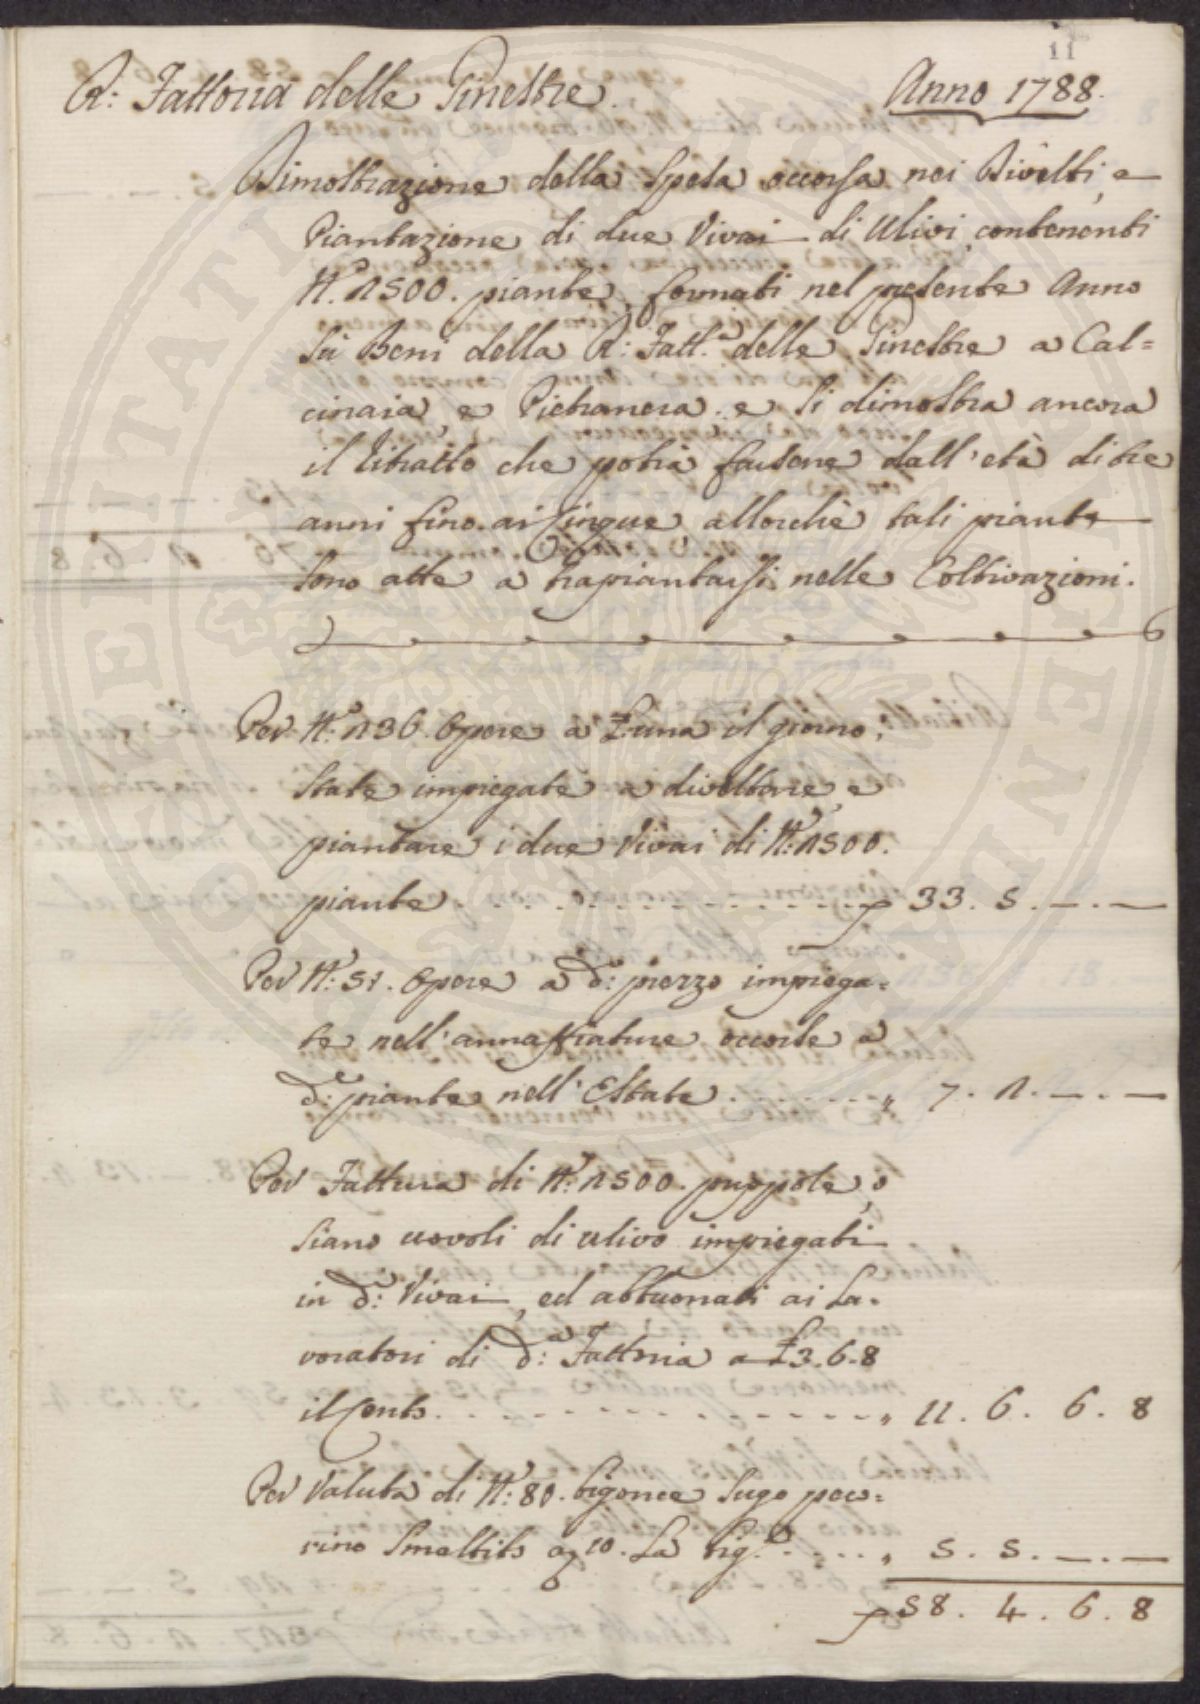 11
R: Fattoria delle Ginestre. Anno 1788.
Dimostrazione della Spesa occorsa nei Divelti, e
Piantazione di due Vivai di Ulivi contenenti
N.º 1500. piante, formati nel presente Anno
Sù Beni della R: Fatt.ª delle Ginestre a Cal=
cinaia, e Pietranera. e Si dimostra ancora
il ritratto che potrà farsene dall'età di tre
anni fino ai Cinque allorchè tali piante
Sono atte a trapiantarsi nelle Coltivazioni.
Per N.º 136. Opere a £ una il giorno,
State impiegate a divettare, e
piantare i due Vivai di N.º 1500.
piante . . . . . . . . . . . . . . . . ƒ 33. 5. —. —
Per N.º 51. Opere a d.º prezzo impiega=
te nell'annaffiature occorse a
d.e piante nell'Estate . . . . . . „ 7. 1. —. —
Per Fattura di N.º 1500. puppole, o
Siano uovoli di ulivo impiegati
in d.i Vivai, ed abbuonati ai La=
voratori di d.ª Fattoria a £ 3.6.8
il Cento. . . . . . . . . . . . . . . . „ 11. 6. 6. 8
Per Valuta di N.º 80. bigonce Sugo peco=
rino Smaltito a 10. La big.ª . . . . „ 5. 5. —. —
ƒ 58. 4. 6. 8